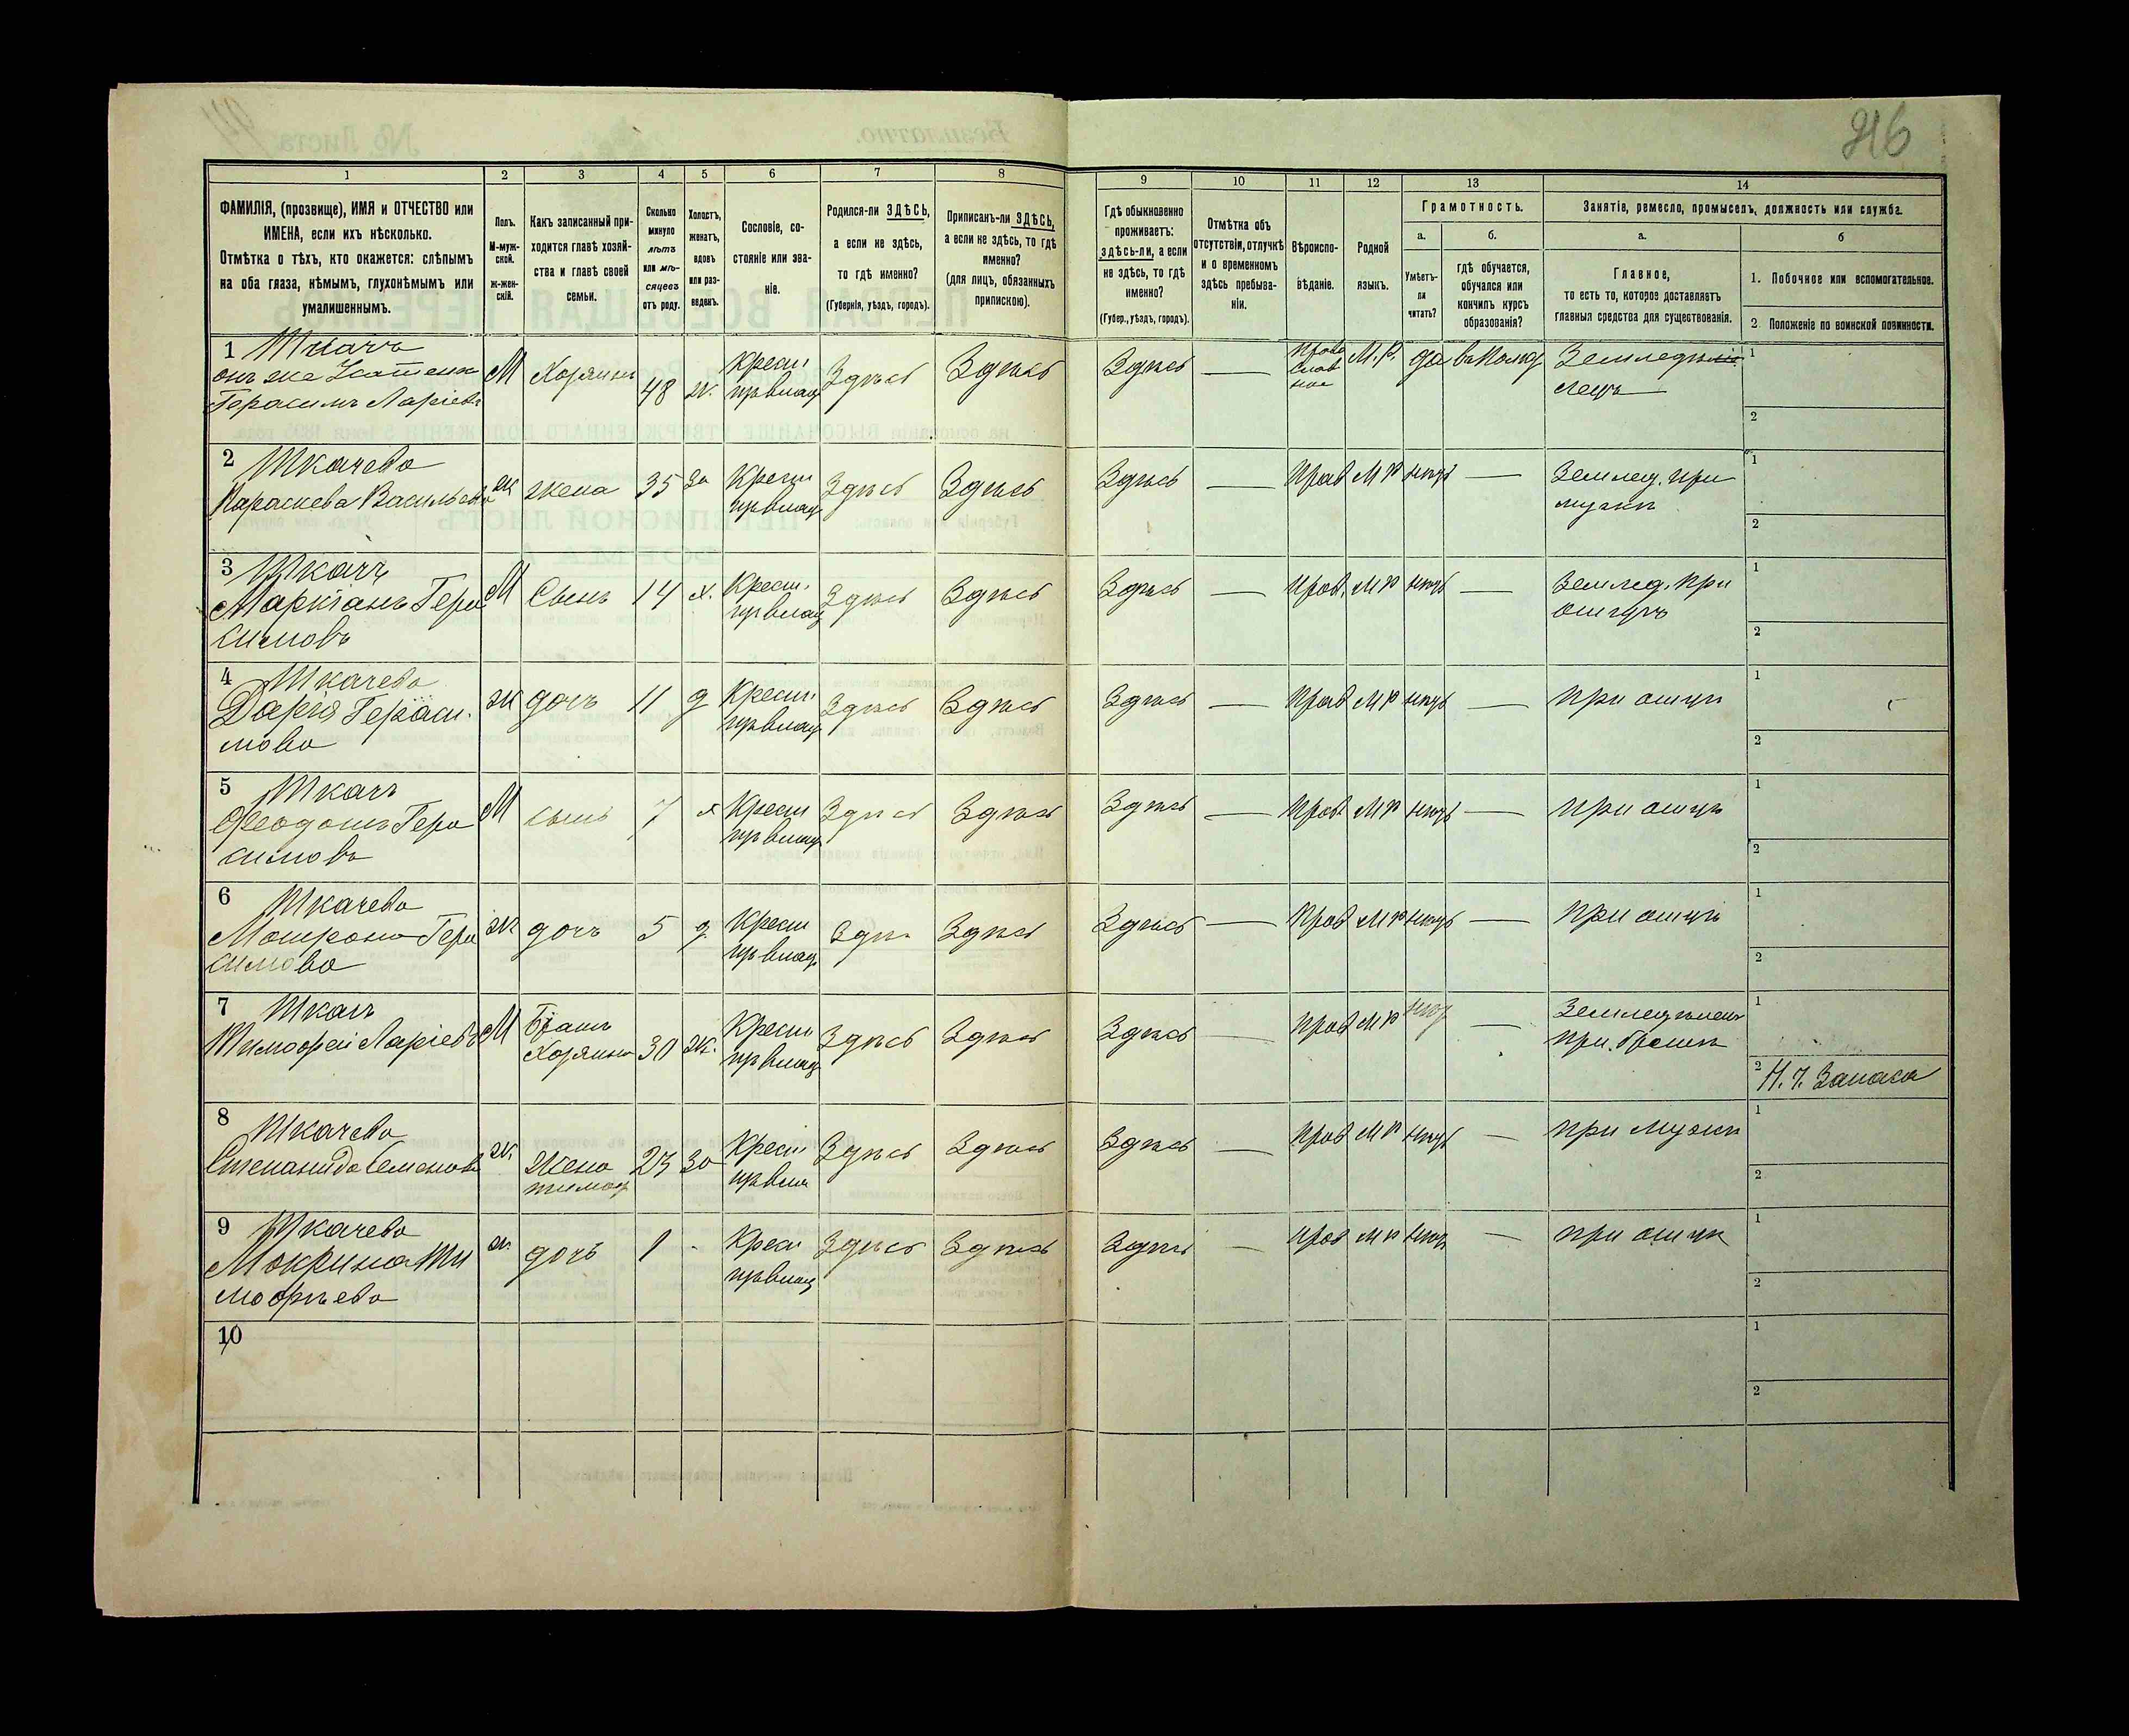 216
1 2 3 4 5 6 7 8 9 10 11 12 13 14
ФАМИЛІЯ, (прозвище), ИМЯ и ОТЧЕСТВО или
ИМЕНА, если ихъ нѣсколько.
Отмѣтка о тѣхъ, кто окажется: слѣпымъ
на оба глаза, нѣмымъ, глухонѣмымъ или
умалишеннымъ.
Полъ.
М-муж-
ской.
Ж-жен-
скій.
Какъ записанный при-
ходится главѣ хозяй-
ства и главѣ своей
семьи.
Сколько
минуло
лѣтъ
или мѣ-
сяцевъ
отъ роду.
Холостъ,
женатъ,
вдовъ
или раз-
веденъ.
Сословіе, со-
стояніе или зва-
ніе.
Родился-ли ЗДѢСЬ,
а если не здѣсь,
то гдѣ именно?
(Губернія, уѣздъ, городъ).
Приписанъ-ли ЗДѢСЬ,
а если не здѣсь, то гдѣ
именно?
(для лицъ, обязанныхъ
припискою).
Гдѣ обыкновенно
проживаетъ:
здѣсь-ли, а если
не здѣсь, то гдѣ
именно?
(Губер., уѣздъ, городъ).
Отмѣтка объ
отсутствіи, отлучкѣ
и о временномъ
здѣсь пребыва-
ніи.
Вѣроиспо-
вѣданіе.
Родной
языкъ.
Грамотность.
а.
Умѣетъ-
ли
читать?
б.
гдѣ обучается,
обучался или
кончилъ курсъ
образованія?
Занятіе, ремесло, промыселъ, должность или служба.
а.
Главное,
то есть то, которое доставляетъ
главныя средства для существованія.
б
1. Побочное или вспомогательное.
2. Положеніе по воинской повинности.
1 Ткачъ
онъ же
Герасимъ Ларіевъ
М Хозяинъ 48 ж. Крест. Здѣсь Здѣсь Здѣсь —
Право
слав
ное
М.р. да
Земледѣ
лецъ
1
2
2 Ткачева
Параскева Васильева
ж жена 35 за Крест Здѣсь Здѣсь Здѣсь — Прав М р нѣтъ —
Землед. при
мужѣ
1
2
3 Ткачъ
Маркіанъ Гера
симовъ
М Сынъ 14 х. Крест. Здѣсь Здѣсь Здѣсь — Прав. М р нѣтъ —
Землед. при
отцѣ
1
2
4 Ткачева
Дарія Гераси-
мова
ж дочь 11 д Крест Здѣсь Здѣсь Здѣсь — Прав М р нѣтъ — при отцѣ
1
2
5 Ткачъ
Феодосій Гера
симовъ
М сынъ 7 х Крест Здѣсь Здѣсь Здѣсь — Прав М р нѣтъ — при отцѣ
1
2
6 Ткачева
Матрона Гера
симова
ж дочь 5 д Крест Здѣсь Здѣсь Здѣсь — Прав М р нѣтъ — при отцѣ
1
2
7 Ткачъ
Тимофей Ларіевъ
М
Братъ
Хозяина
30 ж. Крест Здѣсь Здѣсь Здѣсь — Прав М р нѣтъ —
Земледѣлецъ
при братѣ
1
2 Н. Ч. Запаса
8 Ткачева
Степанида Семенова
ж.
Жена
тимоф
23 за Крест Здѣсь Здѣсь Здѣсь — Прав М р нѣтъ — при мужѣ
1
2
9 Ткачева
Мокрина Ти
мофѣева
ж. дочь 1 - Крест Здѣсь Здѣсь Здѣсь — Прав М р нѣтъ — при отцѣ
1
2
10
1
2